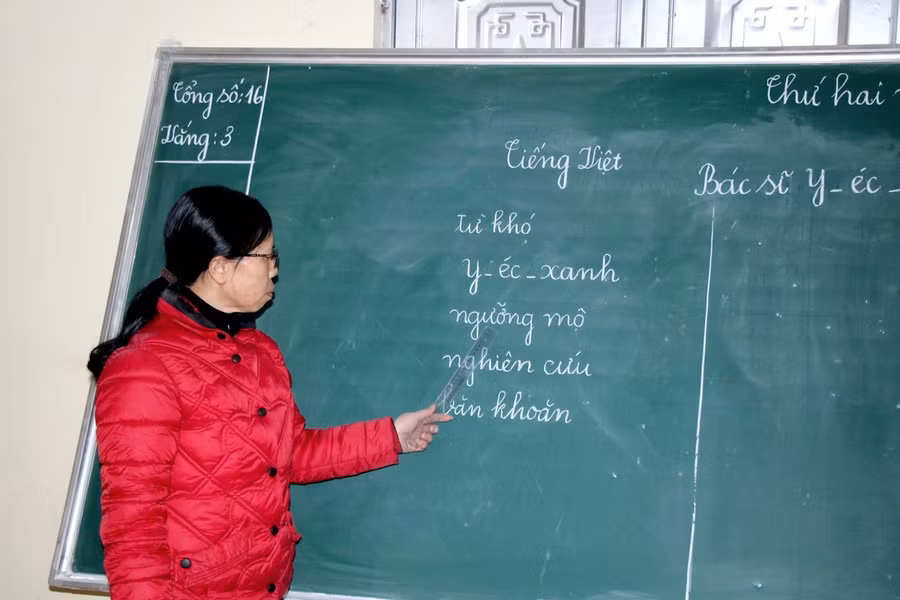 Tổng số: 16
Vắng: 3
Thứ hai
Tiếng Việt
Bác sĩ Y - éc -
Từ khó
Y - éc - xanh
ngưỡng mộ
nghiên cứu
băn khoăn